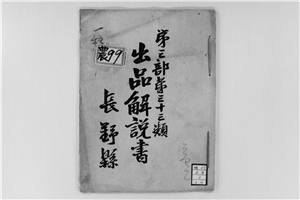 農99
第三部第三十三類
出品解説書
長野縣